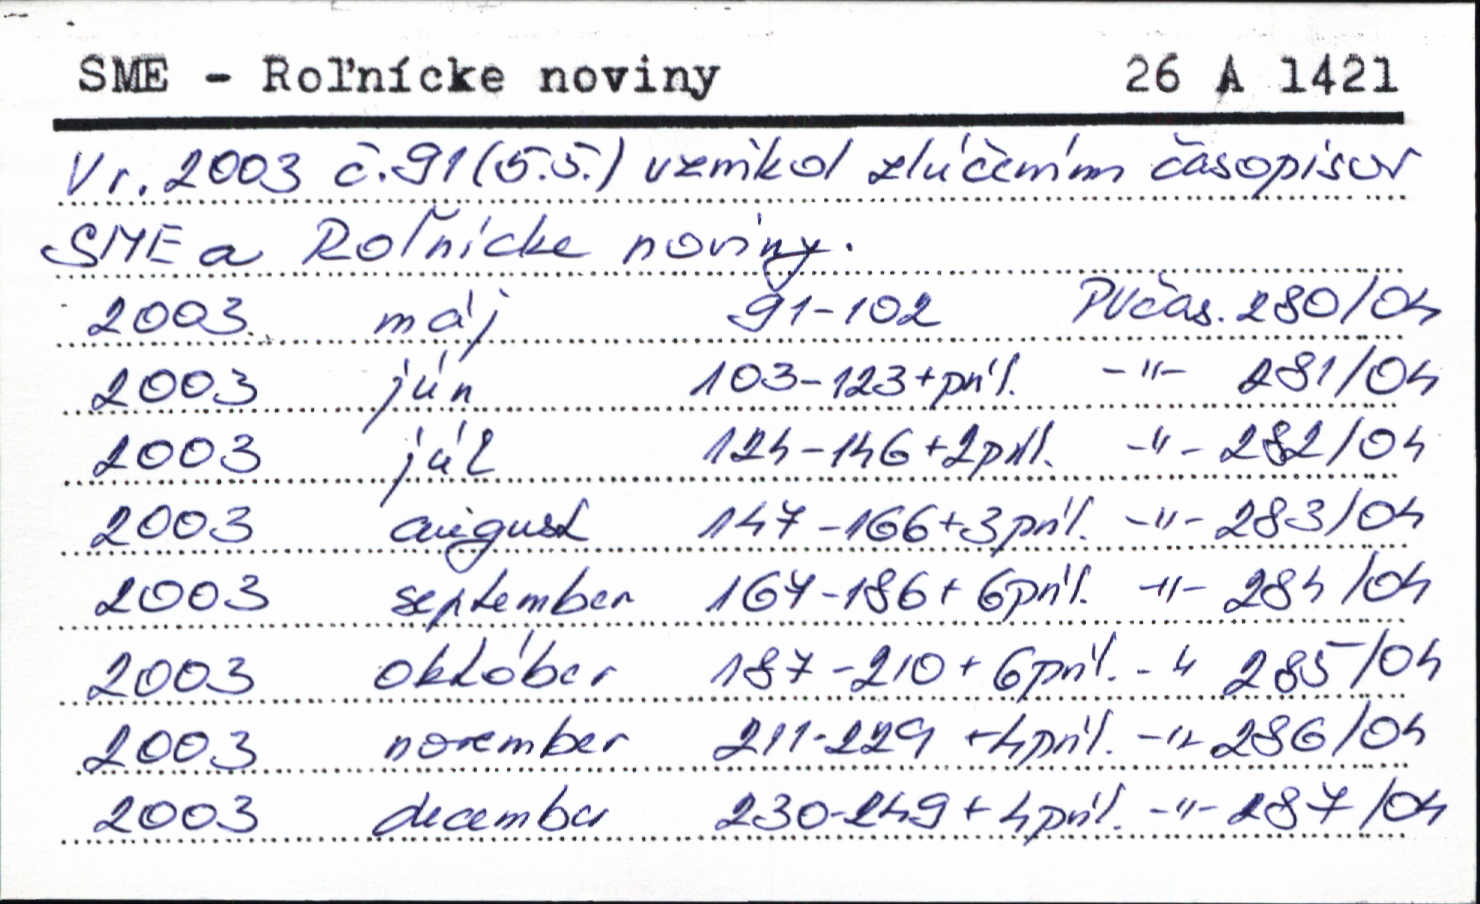 SME - Roľnícke noviny 26 A 1421
V r. 2003 č. 91 (5.5.) vznikol zlúčením časopisov
SME a Roľnícke noviny.
2003 máj 91-102 PVčas. 280/04
2003 jún 103-123+príl. -"- 281/04
2003 júl 124-146+2príl. -"- 282/04
2003 august 147-166+3príl. -"- 283/04
2003 september 167-186+6príl. -"- 284/04
2003 október 187-210+6príl. -" 285/04
2003 november 211-229+4príl. -"- 286/04
2003 december 230-249+4príl. -"- 287/04